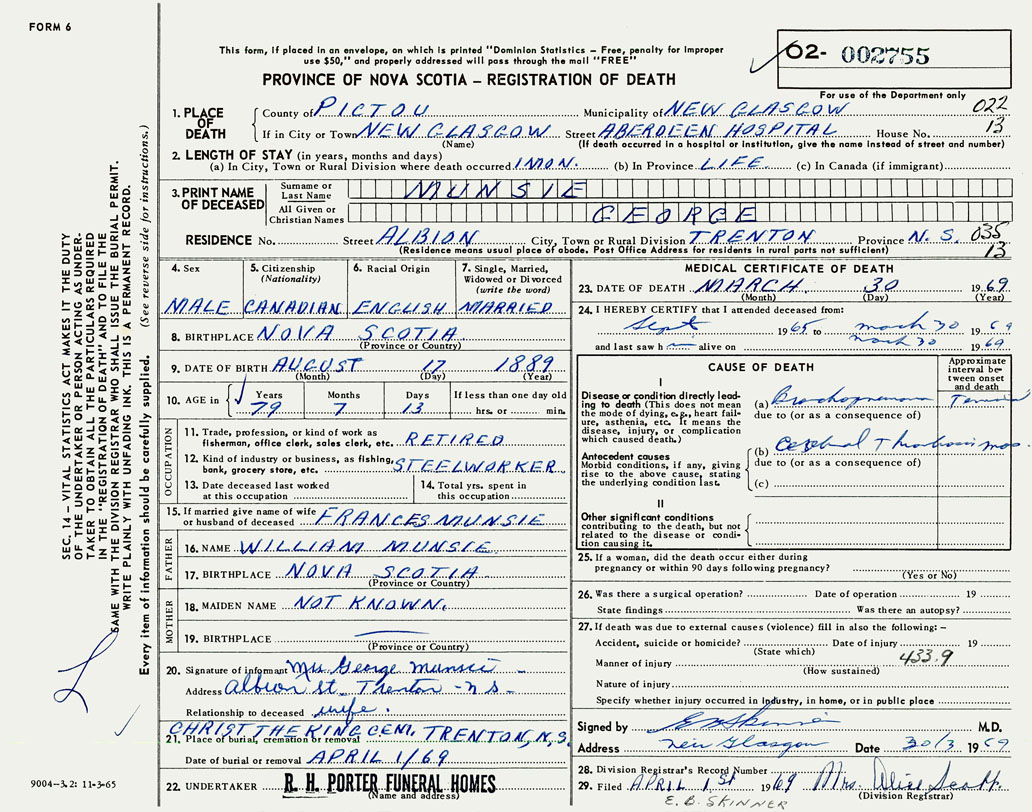 FORM 6
This form, if placed in an envelope, on which is printed "Dominion Statistics – Free, penalty for improper
use $50," and properly addressed will pass through the mail "FREE"
PROVINCE OF NOVA SCOTIA – REGISTRATION OF DEATH
02- 002755
For use of the Department only
022
13
1. PLACE OF DEATH
County of PICTOU Municipality of NEW GLASGOW
If in City or Town NEW GLASGOW Street ABERDEEN HOSPITAL House No.
(Name) (If death occurred in a hospital or institution, give the name instead of street and number)
2. LENGTH OF STAY (in years, months and days)
(a) In City, Town or Rural Division where death occurred 1 MON. (b) In Province LIFE (c) In Canada (if immigrant)
3. PRINT NAME OF DECEASED
Surname or Last Name MUNSIE
All Given or Christian Names GEORGE
RESIDENCE No. Street ALBION City, Town or Rural Division TRENTON Province N.S. 035
(Residence means usual place of abode. Post Office Address for residents in rural parts not sufficient) 13
4. Sex
MALE
5. Citizenship (Nationality)
CANADIAN
6. Racial Origin
ENGLISH
7. Single, Married, Widowed or Divorced (write the word)
MARRIED
8. BIRTHPLACE NOVA SCOTIA
(Province or Country)
9. DATE OF BIRTH AUGUST 17 1889
(Month) (Day) (Year)
10. AGE in Years Months Days If less than one day old
79 7 13 hrs. or min.
OCCUPATION
11. Trade, profession, or kind of work as
fisherman, office clerk, sales clerk, etc. RETIRED
12. Kind of industry or business, as fishing,
bank, grocery store, etc. STEELWORKER
13. Date deceased last worked
at this occupation
14. Total yrs. spent in
this occupation
15. If married give name of wife
or husband of deceased FRANCES MUNSIE
FATHER
16. NAME WILLIAM MUNSIE
17. BIRTHPLACE NOVA SCOTIA
(Province or Country)
MOTHER
18. MAIDEN NAME NOT KNOWN.
19. BIRTHPLACE
(Province or Country)
20. Signature of informant Mrs George Munsie
Address Albion St. Trenton - N S -
Relationship to deceased wife.
CHRIST THE KING CEM. TRENTON, N.S.
21. Place of burial, cremation or removal
Date of burial or removal APRIL 1/69
22. UNDERTAKER R. H. PORTER FUNERAL HOMES
(Name and address)
MEDICAL CERTIFICATE OF DEATH
23. DATE OF DEATH MARCH 30 1969
(Month) (Day) (Year)
24. I HEREBY CERTIFY that I attended deceased from:
Sept 1965 to March 30 69
and last saw h alive on March 30 1969
CAUSE OF DEATH
Approximate interval between onset and death
I
Disease or condition directly lead-
ing to death (This does not mean
the mode of dying, e.g., heart fail-
ure, asthenia, etc. It means the
disease, injury, or complication
which caused death.)
(a)
due to (or as a consequence of)
Antecedent causes
Morbid conditions, if any, giving
rise to the above cause, stating
the underlying condition last.
(b) Cerebral Thrombosis mos.
due to (or as a consequence of)
(c)
II
Other significant conditions
contributing to the death, but not
related to the disease or condi-
tion causing it.
25. If a woman, did the death occur either during
pregnancy or within 90 days following pregnancy?
(Yes or No)
26. Was there a surgical operation? Date of operation 19
State findings Was there an autopsy?
27. If death was due to external causes (violence) fill in also the following: –
Accident, suicide or homicide? Date of injury 19
(State which)
433.9
Manner of injury
(How sustained)
Nature of injury
Specify whether injury occurred in industry, in home, or in public place
Signed by M.D.
Address New Glasgow Date 30/3 1969
28. Division Registrar's Record Number
29. Filed APRIL 1st 1969 Mrs.
(Division Registrar)
E.B. SKINNER
SEC. 14 – VITAL STATISTICS ACT MAKES IT THE DUTY
OF THE UNDERTAKER OR PERSON ACTING AS UNDER-
TAKER TO OBTAIN ALL THE PARTICULARS REQUIRED
IN THE "REGISTRATION OF DEATH" AND TO FILE THE
SAME WITH THE DIVISION REGISTRAR WHO SHALL ISSUE THE BURIAL PERMIT.
WRITE PLAINLY WITH UNFADING INK. THIS IS A PERMANENT RECORD.
Every item of information should be carefully supplied. (See reverse side for instructions.)
9004–3.2: 11-3-65